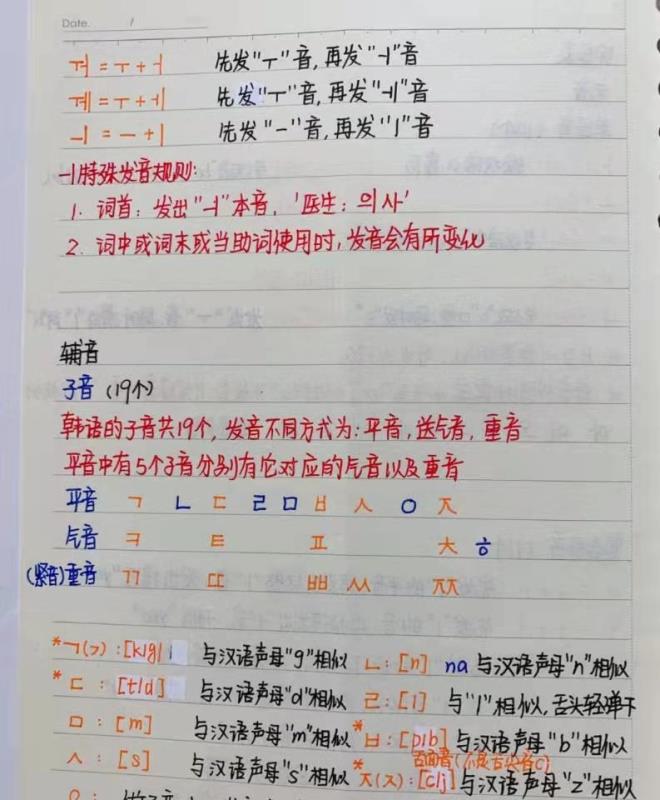 Date. /
ㅝ = ㅜ + ㅓ 先发"ㅜ"音, 再发"ㅓ"音
ㅞ = ㅜ + ㅔ 先发"ㅜ"音, 再发"ㅔ"音
ㅢ = ㅡ + ㅣ 先发"ㅡ"音, 再发"ㅣ"音
ㅢ特殊发音规则:
1. 词首: 发出"ㅢ"本音, '医生: 의사'
2. 词中或词末或当助词使用时, 发音会有所变化
辅音
子音 (19个)
韩语的子音共19个, 发音不同方式为: 平音, 送气音, 重音
平音中有5个子音分别有它对应的气音以及重音
平音 ㄱ ㄴ ㄷ ㄹ ㅁ ㅂ ㅅ ㅇ ㅈ
气音 ㅋ ㅌ ㅍ ㅊ ㅎ
(紧音)重音 ㄲ ㄸ ㅃ ㅆ ㅉ
*ㄱ(ㄱ): [k/g] 与汉语声母"g"相似 ㄴ: [n] na 与汉语声母"n"相似
*ㄷ: [t/d] 与汉语声母"d"相似 ㄹ: [l] 与"l"相似, 舌头轻弹下
ㅁ: [m] 与汉语声母"m"相似 *ㅂ: [p/b] 与汉语声母"b"相似
舌面音(不是舌尖音c)
ㅅ: [s] 与汉语声母"s"相似 *ㅈ(ス): [c/j] 与汉语声母"z"相似